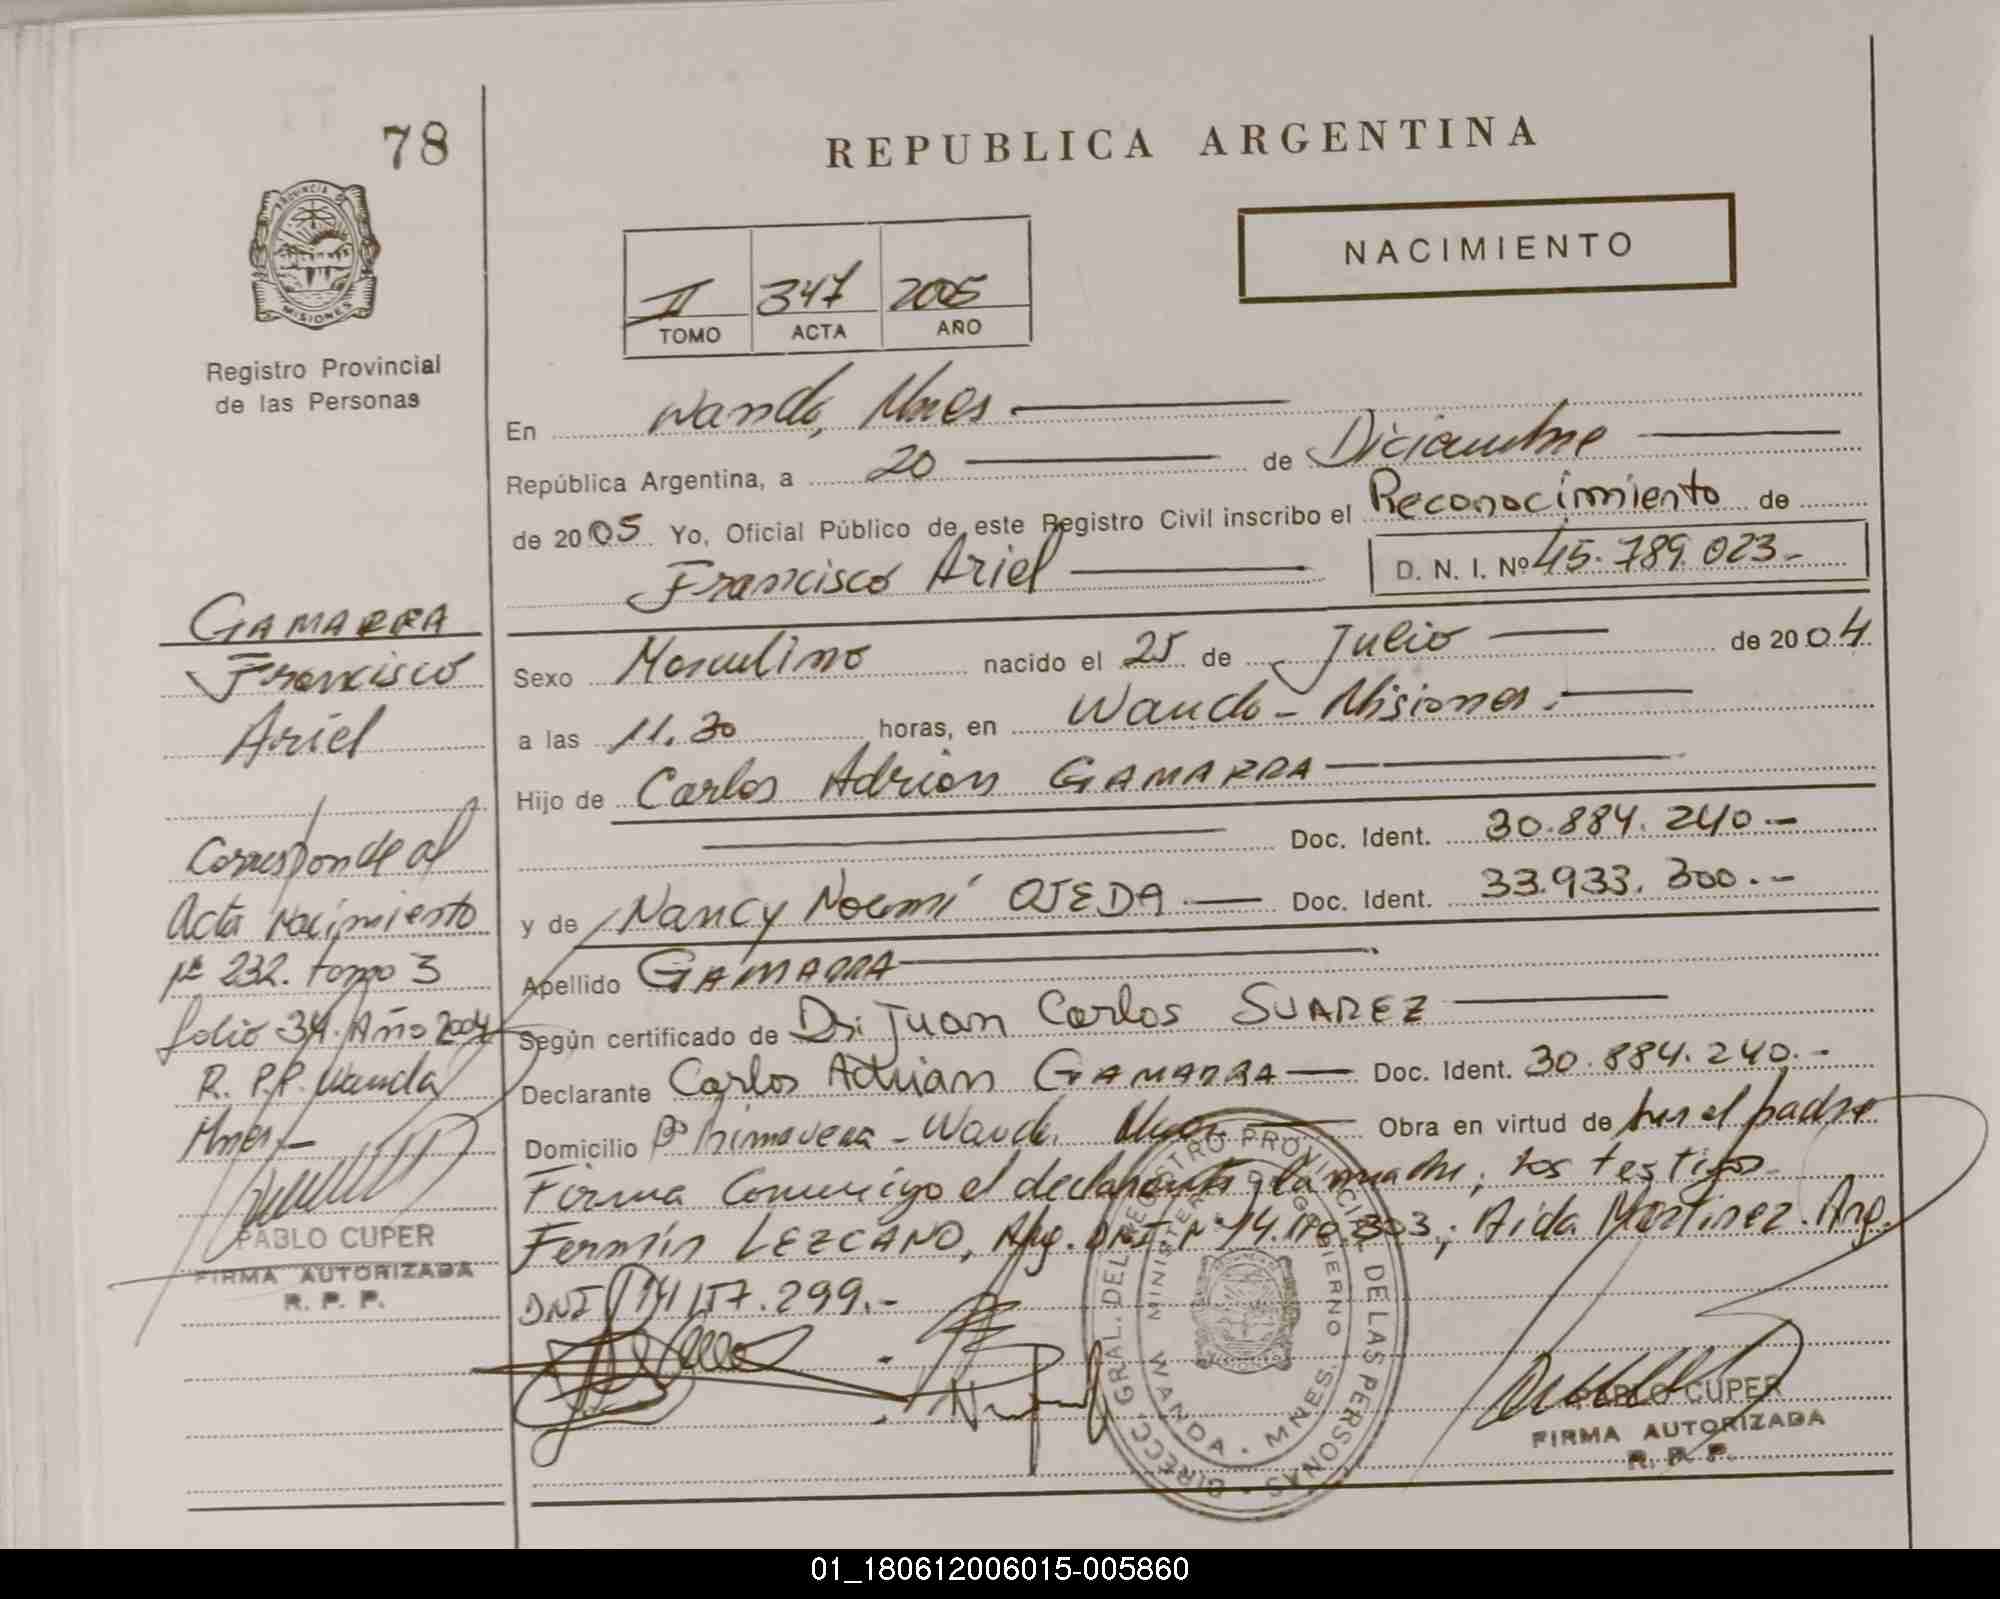 78
REPUBLICA ARGENTINA
PROVINCIA DE
MISIONES
Registro Provincial
de las Personas
NACIMIENTO
II 347 2005
TOMO ACTA AÑO
En Wanda, Mnes
República Argentina, a 20 de Diciembre
de 2005 Yo, Oficial Público de este Registro Civil inscribo el Reconocimiento de
Francisco Ariel D. N. I. Nº 45.789.023.-
Sexo Masculino nacido el 25 de Julio de 2004
a las 11.30 horas, en Wanda - Misiones.
Hijo de Carlos Adrian GAMARRA
Doc. Ident. 30.884.240.-
y de Nancy Noemí OJEDA.- Doc. Ident. 33.933.300.-
Apellido GAMARRA
Según certificado de Dr: Juan Carlos SUAREZ
Declarante Carlos Adrian GAMARRA Doc. Ident. 30.884.240.-
Domicilio Bº Primavera - Wanda Mnes Obra en virtud de ser el padre
Firma conmigo el declarante, la madre, los testigos
Fermín LEZCANO, Arg. DNI Nº 14.303; Aida Martinez. Arg.
DNI 299.-
GAMARRA
Francisco
Ariel
Corresponde al
Acta Nacimiento
Nº 232. tomo 3
folio 34. Año 2004
R. P.P. Wanda
Mnes.-
PABLO CUPER
FIRMA AUTORIZADA
R. P. P.
DIRECC. GRAL. DEL REGISTRO PROVINCIAL DE LAS PERSONAS
MINISTERIO DE GOBIERNO
WANDA - MNES.
PABLO CUPER
FIRMA AUTORIZADA
R. P. P.
01_180612006015-005860